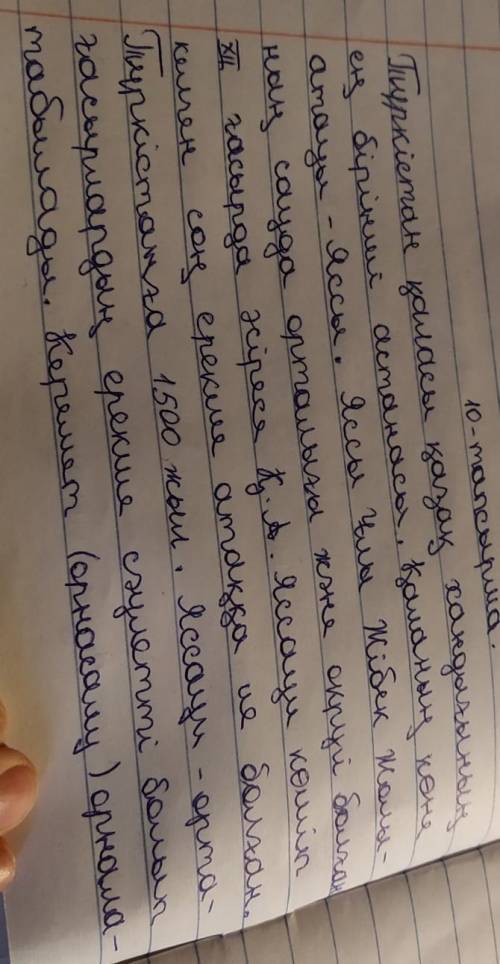 10-тапсырма.
Түркістан қаласы қазақ хандығының
ең бірінші астанасы. Қаланың көне
атауы - Яссы. Яссы Ұлы Жібек Жолы-
ның сауда орталығы және округі болған
XII ғасырда әсіресе Қ.А. Яссауи көшіп
келген соң ерекше атаққа ие болған.
Түркістанға 1500 жыл. Яссауи - орта-
ғасырлардың ерекше сәулетті болып
табылады. Керемет (орнасалу) орнала-